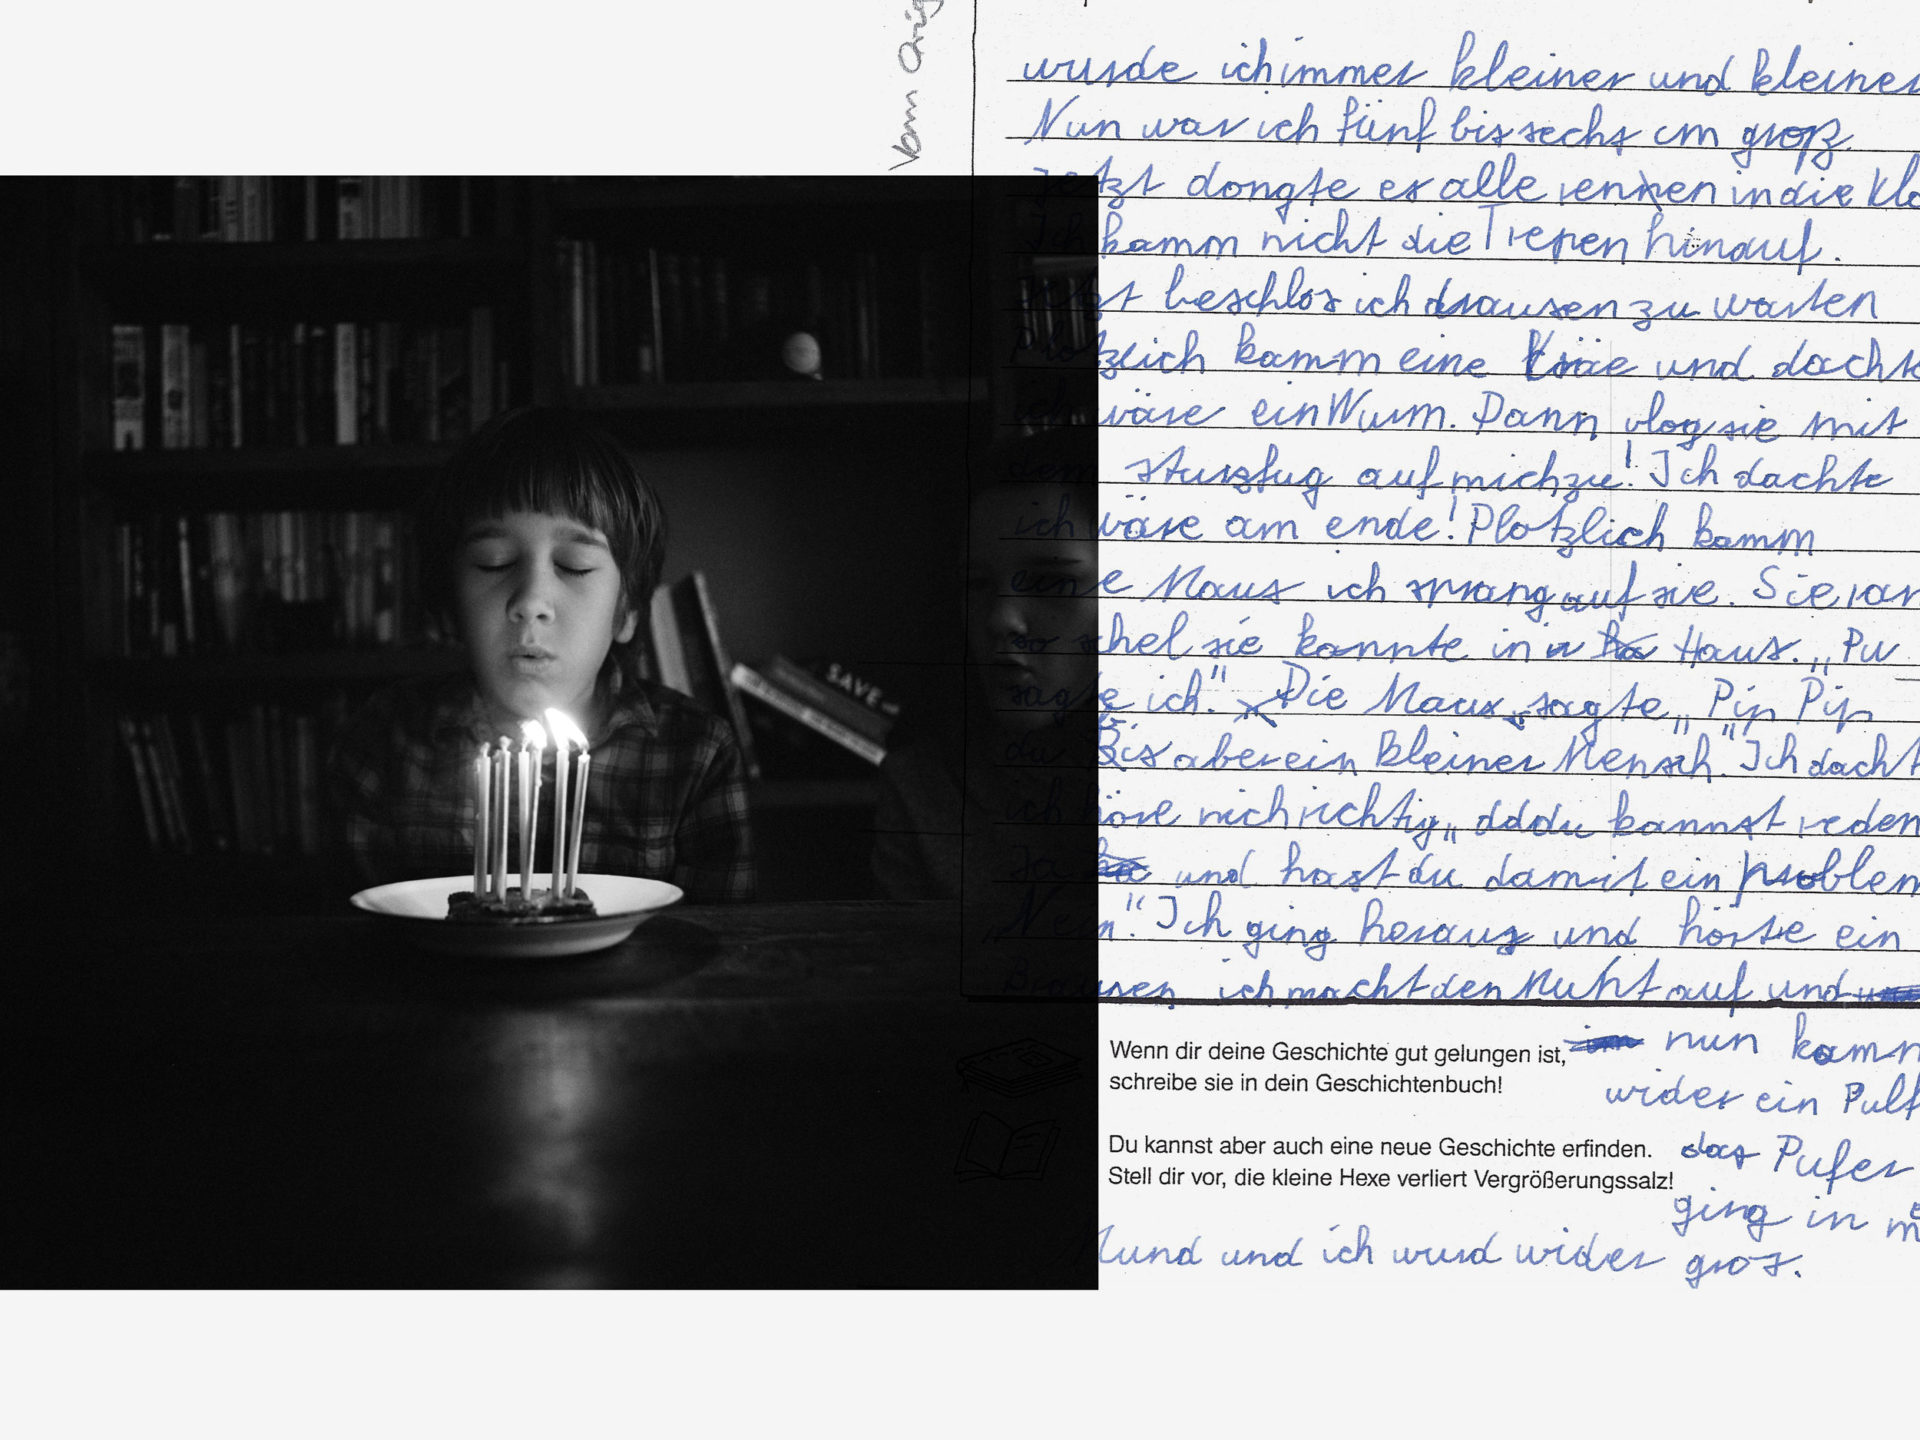 Vom
wurde ich immer kleiner und kleiner
Nun war ich fünf bis sechs cm groß.
Jetzt dongte es alle in die Kla
Ich kamm nicht die Trepen hinauf.
Jetzt beschlos ich drausen zu warten
Plotzlich kamm eine Kräe und dachte
ich wäre ein Wurm. Dann vlog sie mit
dem sturzfug auf mich zu! Ich dachte
ich wäre am ende! Plotzlich kamm
eine Maus ich sprang auf sie. Sie ran
so schel sie kannte in Haus. „Pu
sagte ich." Die Maus sagte „Pip Pip
du Bis aber ein kleiner Mensch." Ich dacht
ich höre nich richtig „dddu kannst reden
Ja und hast du damit ein problem
„Nein". Ich ging heraus und hörte ein
Brausen ich macht den Muht auf und
nun kamm
wider ein Pulf
das Pufer
ging in m
Mund und ich wurd wider gros.
Wenn dir deine Geschichte gut gelungen ist,
schreibe sie in dein Geschichtenbuch!
Du kannst aber auch eine neue Geschichte erfinden.
Stell dir vor, die kleine Hexe verliert Vergrößerungssalz!
SAVE